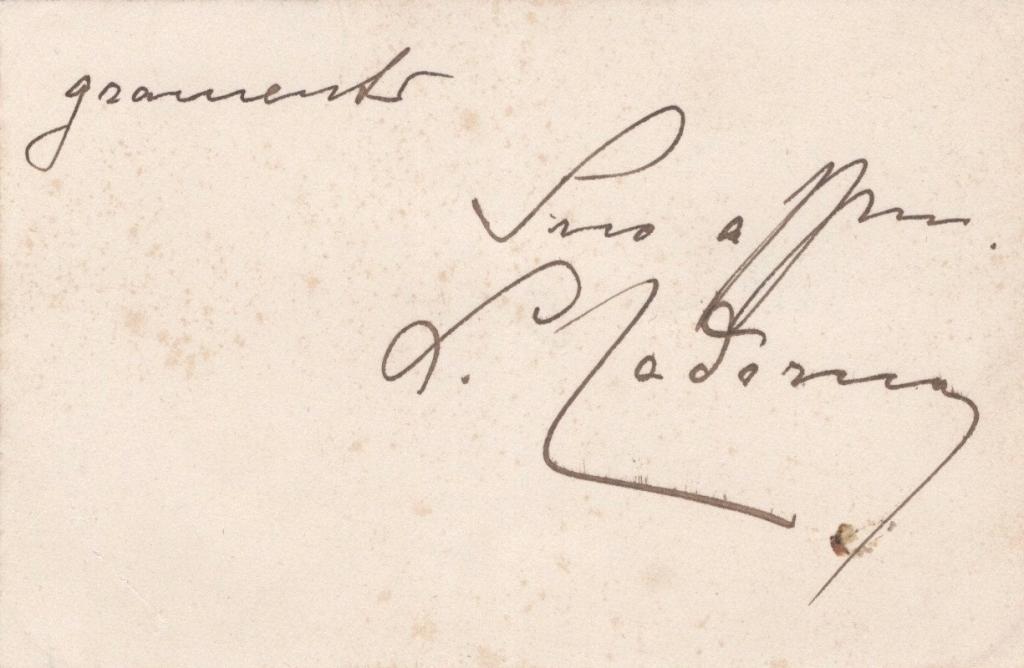 gramento
Suo affmo.
L. Cadorna